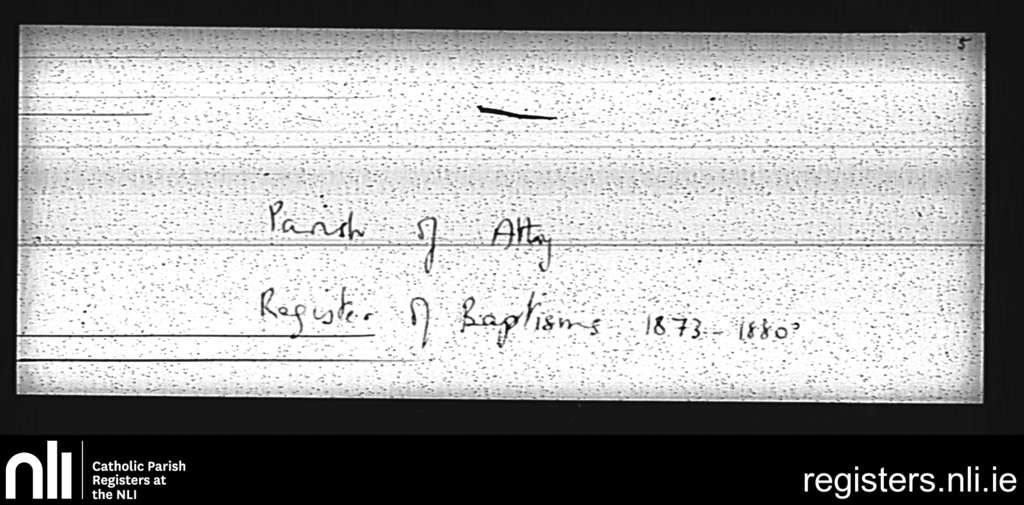 5
Parish of Athy
Register of Baptisms 1873-1880
nli
Catholic Parish
Registers at
the NLI
registers.nli.ie